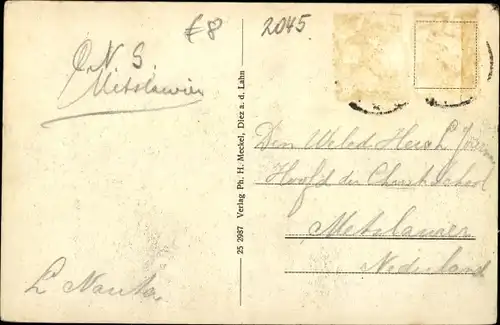 £8
2045
O. N. S.
Metslawier
25 2987 Verlag Ph. H. Meckel, Diez a. d. Lahn
Den Weled. Heer L.
Hoofd der Christ. school
Metslawier
Nederland
L Nauta